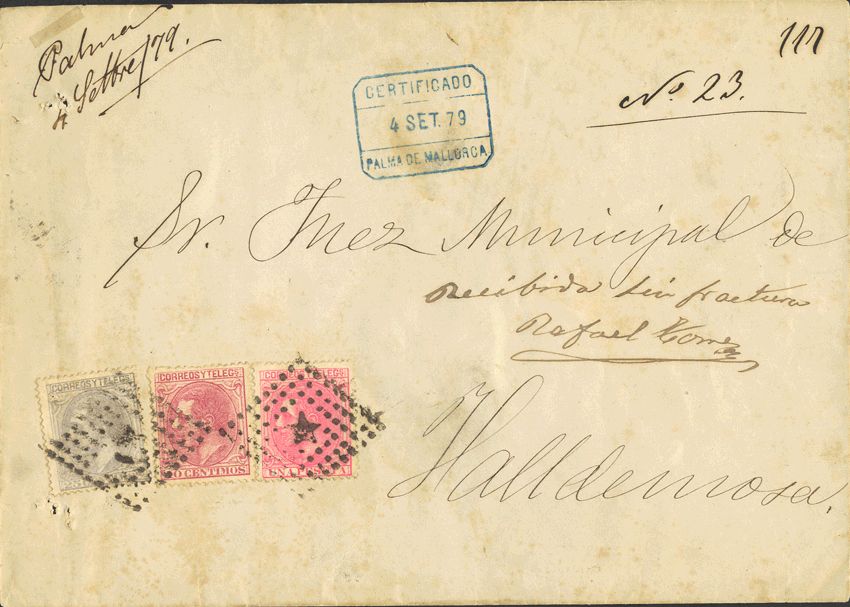 Palma
4 Settre/79.
111
Nº 23.
CERTIFICADO
4 SET. 79
PALMA DE MALLORCA
Sr. Juez Municipal de
Recibida sin fractura
Rafael
Valldemosa.
CORREOS Y TELEGS.
CORREOS Y TELEGS.
CENTIMOS
CORREOS Y TELEGS.
UNA PESETA